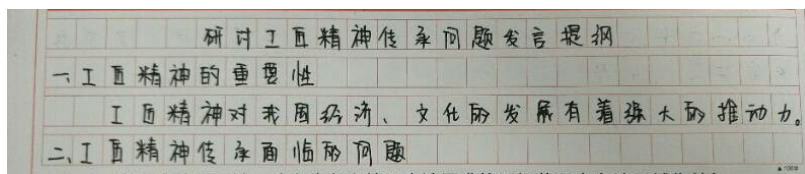 研讨工匠精神传承问题发言提纲
一、工匠精神的重要性
工匠精神对我国经济、文化的发展有着强大的推动力。
二、工匠精神传承面临的问题